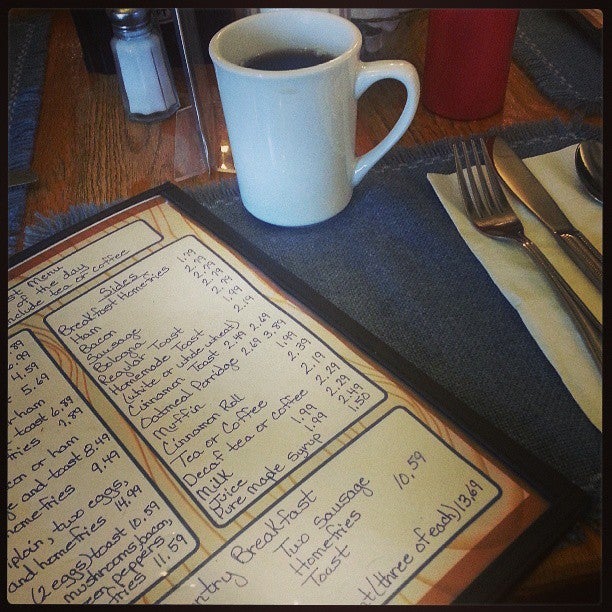 st Menu
of the day
include tea or coffee
Sides
Breakfast Homefries 1.99
Ham 2.79
Bacon 2.79
Sausage 2.79
Bologna 2.79
Regular Toast 1.99
Homemade Toast 2.19
(white or whole wheat)
Cinnamon Toast 2.49 2.69
Oatmeal Porridge 2.69 3.89
Muffin 1.99
Cinnamon Roll 2.39
Tea or Coffee 2.19
Decaf tea or coffee 2.29
Milk 1.99 2.29
Juice 1.99 2.49
Pure maple syrup 1.50
4.59
5.69
ham
toast 6.89
fries 7.89
con or ham
ge and toast 8.49
homefries 9.49
plain, two eggs,
and homefries 14.99
(2 eggs) toast 10.59
mushrooms, bacon,
een peppers,
fries 11.59
ntry Breakfast
Two sausage 10.59
Homefries
Toast
st (three of each) 13.69